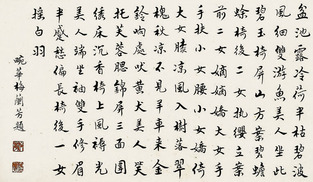 盆池露冷荷半枯碧波
風細雙游魚美人坐此
碧玉椅屏山方案碧蟾
蜍椅後二女執纓立案
前二女嫡嬌大女手
手扶小女腰小女嬌倚
大女腰凉風入樹落翠
凉不見羊車来金
鈴响處吠黄犬美人笑
托芙蓉腮錦屏三面圍
绣床沉香椅上風褥光
美人端坐袖雙手修眉
半蹙愁偏長椅後一女
摇白羽
畹華梅蘭芳題